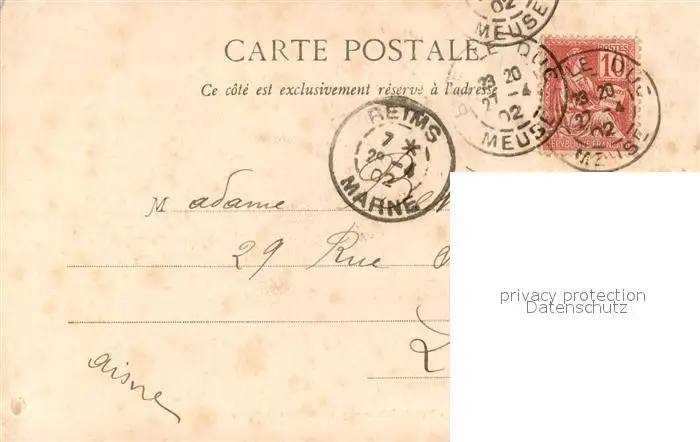 02
MEUSE
CARTE POSTALE
Ce côté est exclusivement réservé à l'adresse
LE DUC
23 20
27 - 4
02
MEUSE
POSTES
10
REPUBLIQUE FRANÇAISE
LE DUC
23 20
27 - 4
02
MEUSE
REIMS
7 *
28 - 4
02
MARNE
Madame
29 Rue
Aisne
privacy protection
Datenschutz